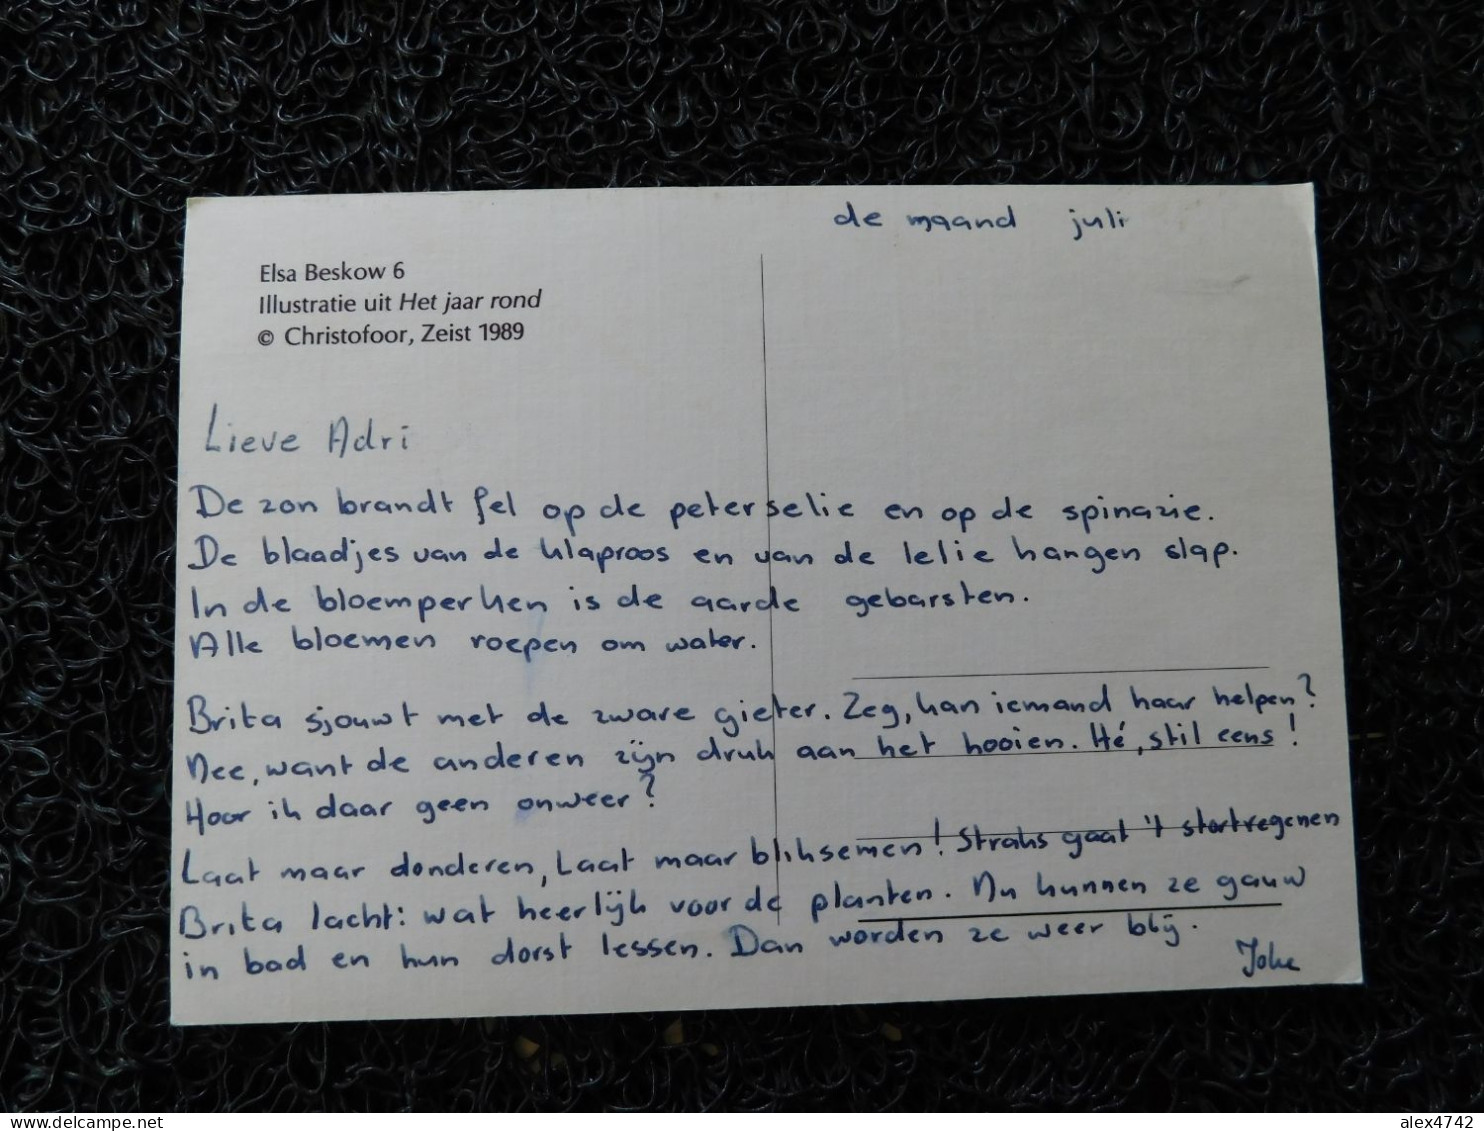 de maand juli
Elsa Beskow 6
Illustratie uit Het jaar rond
© Christofoor, Zeist 1989
Lieve Adri
De zon brandt fel op de peterselie en op de spinazie.
De blaadjes van de klaproos en van de lelie hangen slap.
In de bloemperken is de aarde gebarsten.
Alle bloemen roepen om water.
Brita sjouwt met de zware gieter. Zeg, kan iemand haar helpen?
Nee, want de anderen zijn druk aan het hooien. Hé, stil eens!
Hoor ik daar geen onweer?
Laat maar donderen, Laat maar bliksemen! Straks gaat 't stortregenen
Brita lacht: wat heerlijk voor de planten. Nu kunnen ze gauw
in bad en hun dorst lessen. Dan worden ze weer blij.
Joke
delcampe.net
alex4742